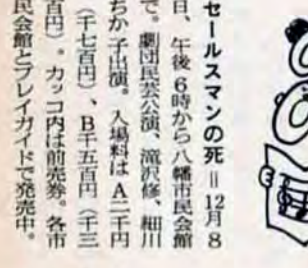 セールスマンの死＝12月8
日、午後6時から八幡市民会館
で。劇団民芸公演、滝沢修、細川
ちか子出演。入場料は A二千円
（千七百円）、B千五百円（千三
百円）。カッコ内は前売券。各市
民会館とプレイガイドで発売中。